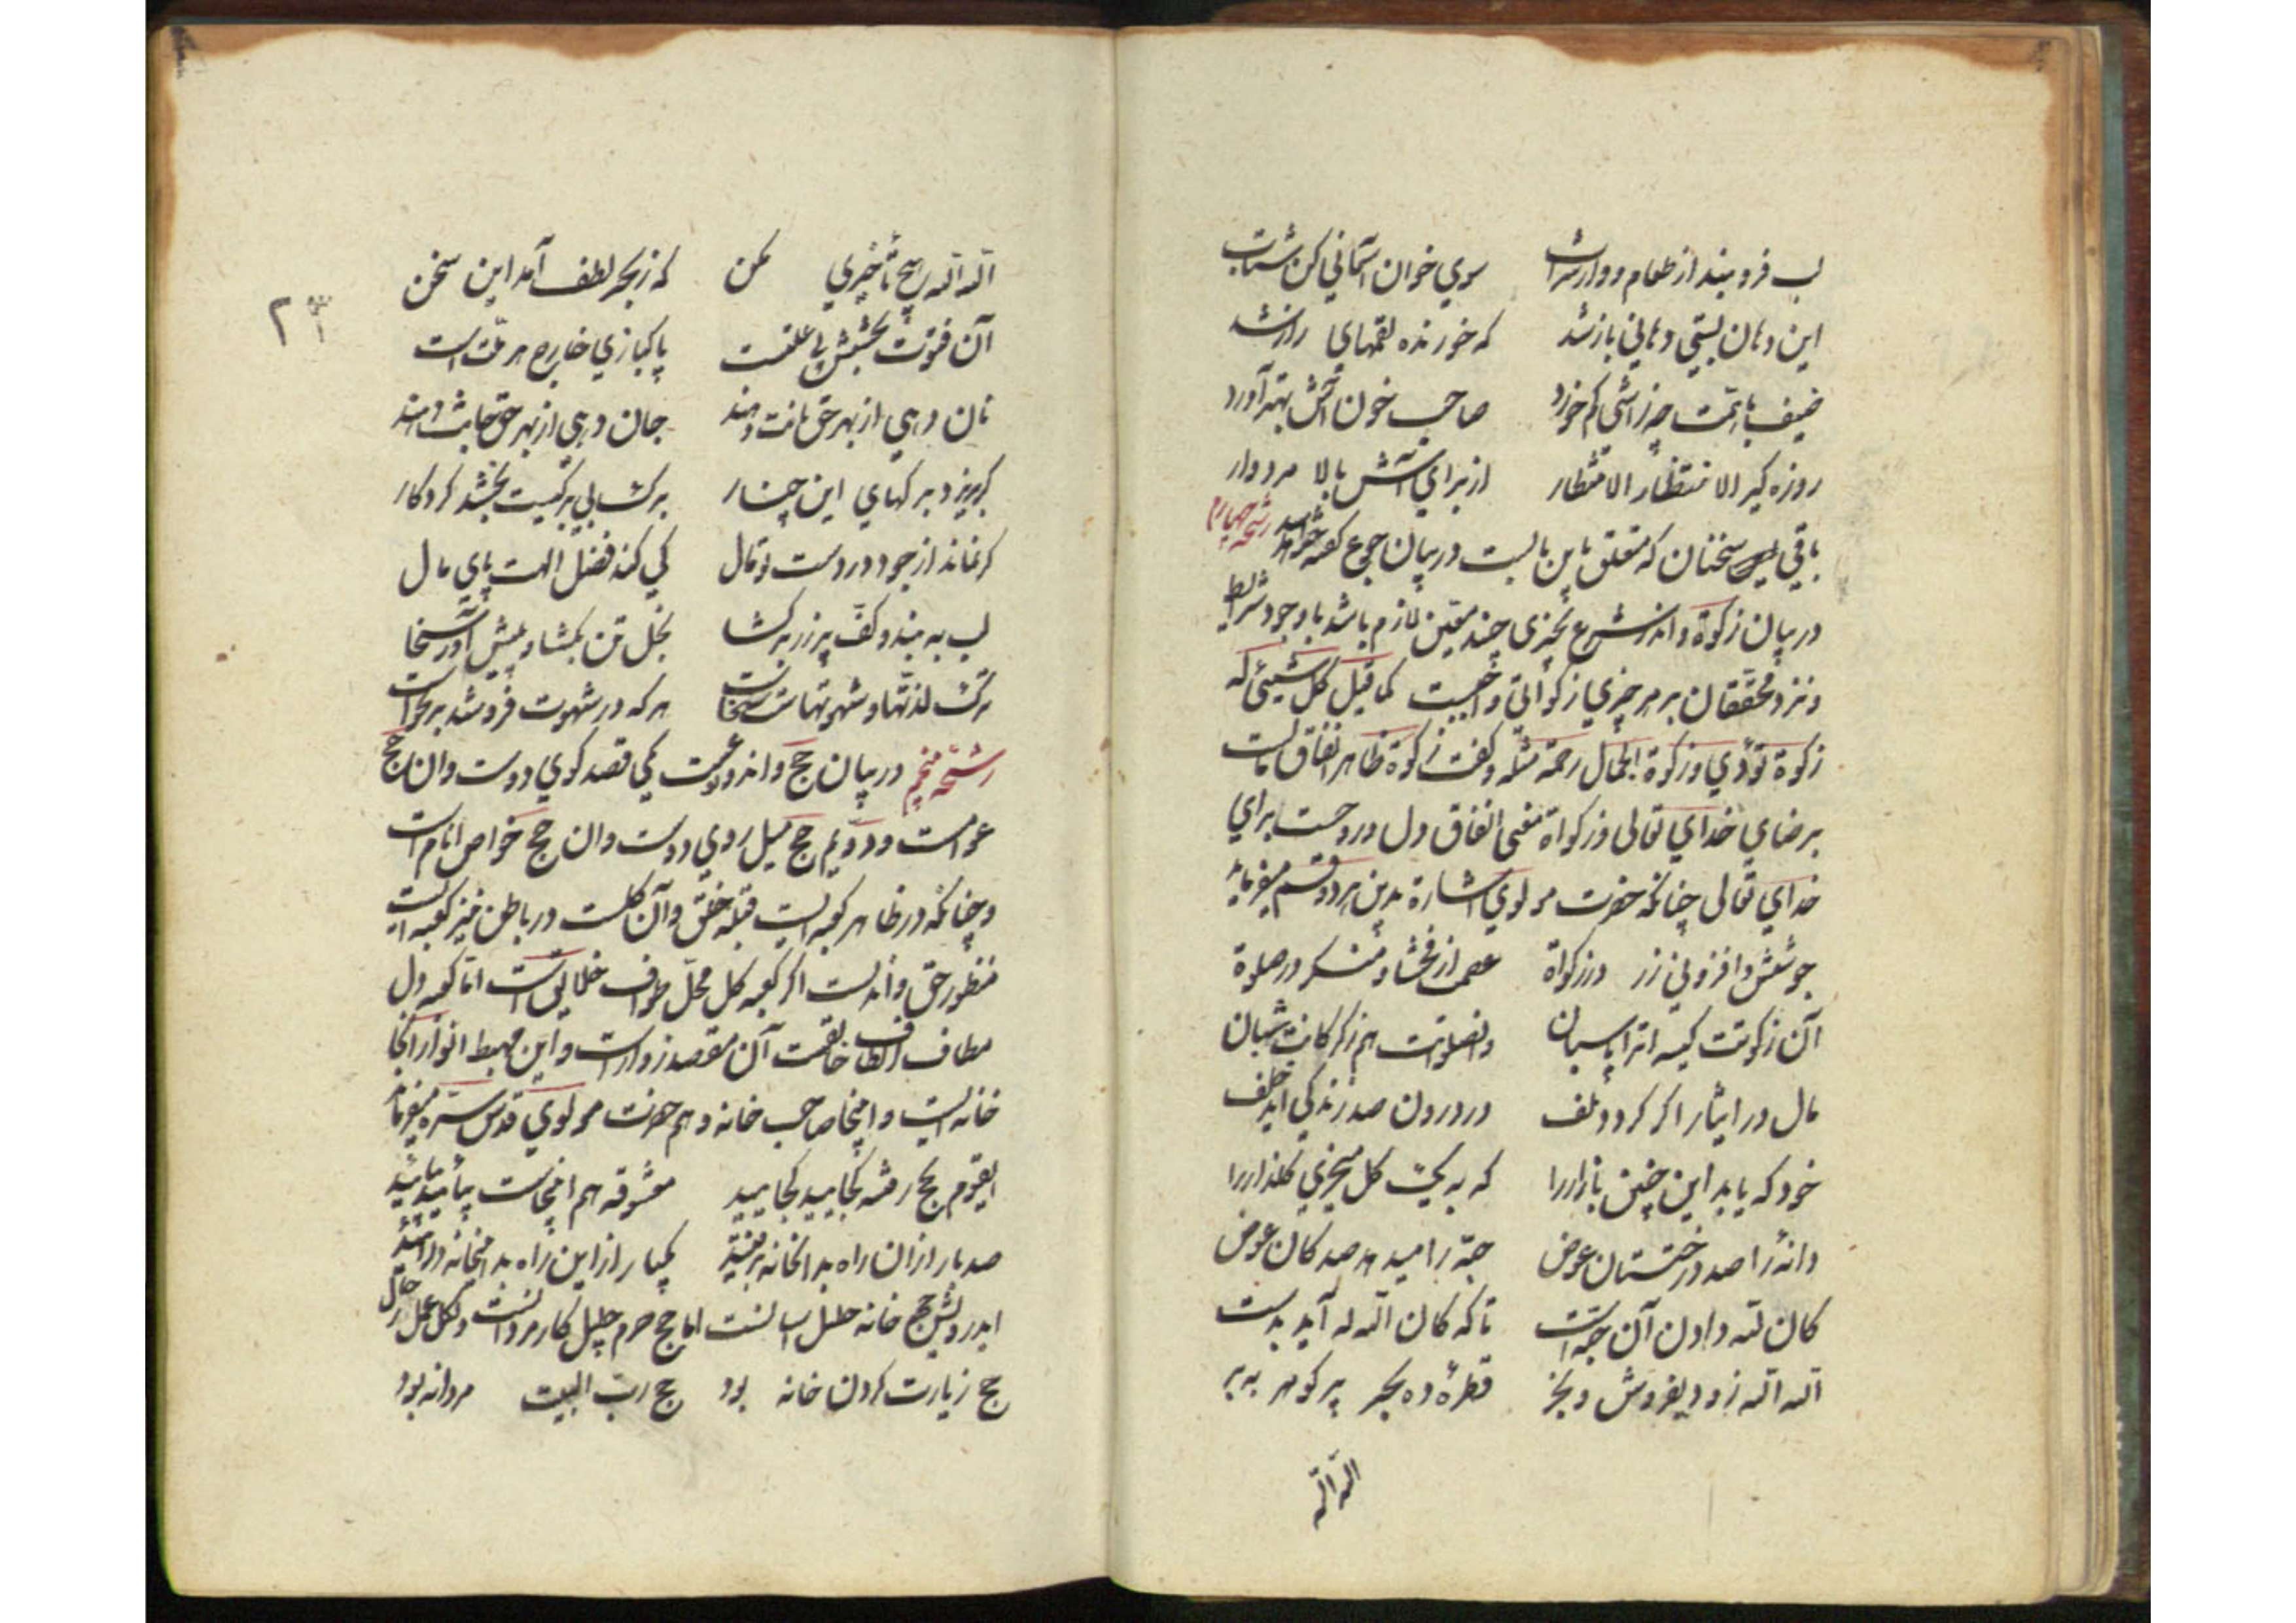 لب فرو بند از طعام و از شراب سوی خوان آسمانی کن شتاب
این دهان بستی دهانی باز شد که خورنده لقمهای راز شد
ضیف باهمت چو زآشی کم خورد صاحب خوان آش بهتر آورد
روزه گیر الانتظار الانتظار از برای آتش بالا مردوار
باقی سخنان که متعلق باین بابست در بیان جوع گفته خواهد شد رشحه چهارم
در بیان زکوة و آن در شرع بچیزی چند معین لازم باشد با وجود شرایط
و نزد محققان بر هر چیزی زکواتی واجبست کما قیل کل شیئ له
زکوة تؤدی و زکوة الجمال رحمة مثله و گفت زکوة ظاهر انفاق مالست
برضای خدای تعالی و زکواة معنی انفاق دل و روحست برای
خدای تعالی چنانکه حضرت مولوی اشارة بدین هر دو قسم میفرماید
جوشش و افزونی زر در زکواة عصمت از فحشا و منکر در صلوة
آن زکوتت کیسه اترا پاسبان وان صلوتت هم ز گرگانت شبان
مال در ایثار اگر گردد تلف در درون صد زندگی آید خلف
خود که یابد این چنین بازاررا که به یک گل میخری گلزاررا
دانهٔ را صد درختستان عوض حبه را میدهد صد کان عوض
کان لله دادن آن حبه است تا که کان الله له آید بدست
الله الله زود بفروش و بخر قطرهٔ ده بحر پر گوهر ببر
الله الله
۲۳
الله الله هیچ تأخیری مکن که ز بحر لطف آمد این سخن
آن فتوت بخشش بی علتست پاکبازی خارج هر ملت است
نان دهی از بهر حق نانت دهند جان دهی از بهر حق جانت دهند
گر بریزد برگهای این چنار برگ بی برگیت بخشد کردگار
گر نماند از جود در دست تو مال کی کند فضل الهت پای مال
لب به بند و کف پر زر برگشا بخل تن بگشا و پیش آور سخا
ترک لذتها و شهوتهاست سخا هر که در شهوت فرو شد بر نخاست
رشحه پنجم در بیان حج و آن دو نوعست یکی قصد کوی دوست و آن حج
عوامست و دویم حج میل روی دوست و آن حج خواص انام است
و چنانکه در ظاهر کعبه ایست قبله خلق و آن گلست در باطن نیز کعبه ایست
منظور حق و آن دلست اگر کعبه گل محل طواف خلایق است اما کعبه دل
مطاف الطاف خالقست آن مقصد زوارست و این مهبط انوار آنجا
خانه ایست و اینجا صاحب خانه و هم حضرت مولوی قدس سره میفرماید
ایقوم بحج رفته کجایید کجایید معشوقه هم اینجاست بیایید بیایید
صد بار از آن راه بدانخانه برفتید یکبار از این راه بدین خانه درآیید
ای درویش حج خانه خلیل آسانست اما حج حرم جلیل کار مردانست و لکل عمل رجال
حج زیارت کردن خانه بود حج رب البیت مردانه بود